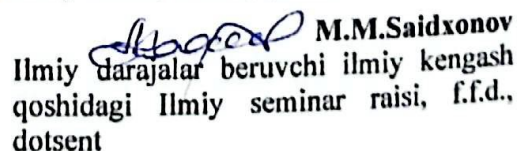 M.M.Saidxonov
Ilmiy darajalar beruvchi ilmiy kengash
qoshidagi Ilmiy seminar raisi, f.f.d.,
dotsent